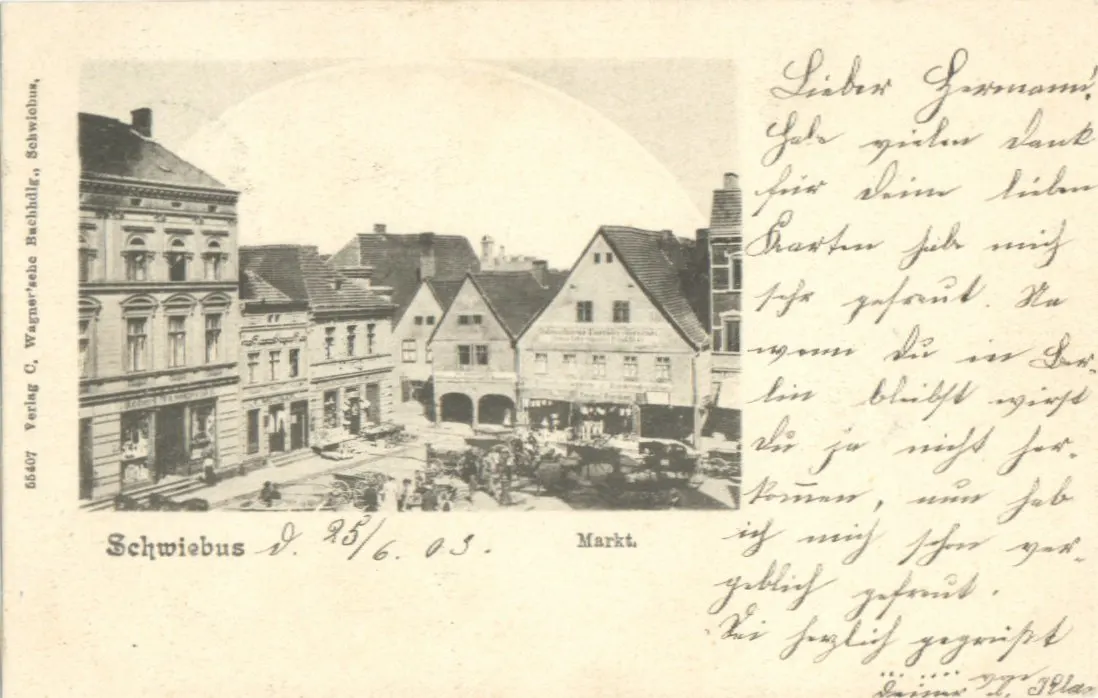 55407 Verlag C. Wagner'sche Buchhdlg., Schwiebus.
Schwiebus d. 25/6. 03.
Markt.
Lieber Hermann!
Hab vielen Dank
für Deine lieben
Karten habe mich
sehr gefreut. Na
wenn Du in Ber-
lin bleibst wirst
Du ja nicht her-
kom̅en, nun hab
ich mich schon ver-
geblich gefreut.
Sei herzlich gegrüßt
von
Deiner